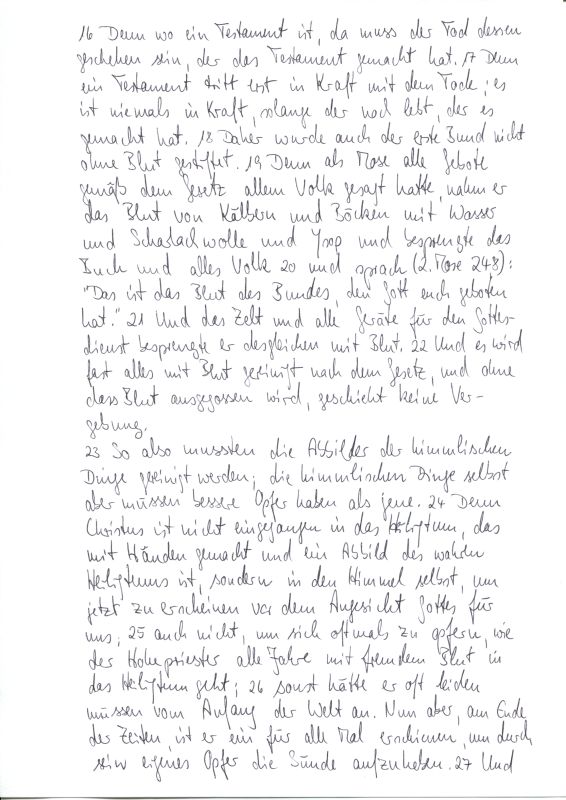 16 Denn wo ein Testament ist, da muss der Tod dessen
geschehen sein, der das Testament gemacht hat. 17 Denn
ein Testament tritt erst in Kraft mit dem Tode; es
ist niemals in Kraft, solange der noch lebt, der es
gemacht hat. 18 Daher wurde auch der erste Bund nicht
ohne Blut gestiftet. 19 Denn als Mose alle Gebote
gemäß dem Gesetz allem Volk gesagt hatte, nahm er
das Blut von Kälbern und Böcken mit Wasser
und Scharlachwolle und Ysop und besprengte das
Buch und alles Volk 20 und sprach (2. Mose 24,8):
"Das ist das Blut des Bundes, den Gott euch geboten
hat." 21 Und das Zelt und alle Geräte für den Gottes-
dienst besprengte er desgleichen mit Blut. 22 Und es wird
fast alles mit Blut gereinigt nach dem Gesetz, und ohne
dass Blut ausgegossen wird, geschieht keine Ver-
gebung.
23 So also mussten die Abbilder der himmlischen
Dinge gereinigt werden; die himmlischen Dinge selbst
aber müssen bessere Opfer haben als jene. 24 Denn
Christus ist nicht eingegangen in das Heiligtum, das
mit Händen gemacht und ein Abbild des wahren
Heiligtums ist, sondern in den Himmel selbst, um
jetzt zu erscheinen vor dem Angesicht Gottes für
uns; 25 auch nicht, um sich oftmals zu opfern, wie
der Hohepriester alle Jahre mit fremdem Blut in
das Heiligtum geht; 26 sonst hätte er oft leiden
müssen vom Anfang der Welt an. Nun aber, am Ende
der Zeiten, ist er ein für alle Mal erschienen, um durch
sein eigenes Opfer die Sünde aufzuheben. 27 Und